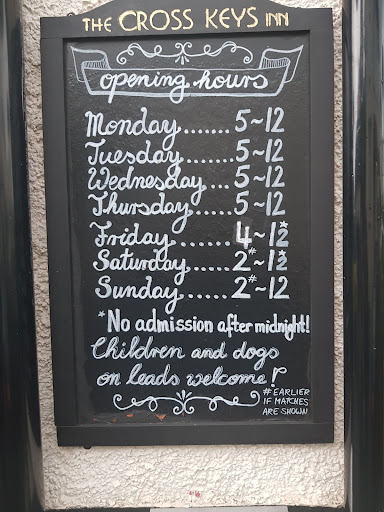 THE CROSS KEYS INN
opening hours
Monday...... 5~12
Tuesday...... 5~12
Wednesday... 5~12
Thursday..... 5~12
Friday....... 4~12*
Saturday...... 2#~12*
Sunday...... 2#~12
*No admission after midnight!
Children and dogs
on leads welcome!
# EARLIER
IF MATCHES
ARE SHOWN